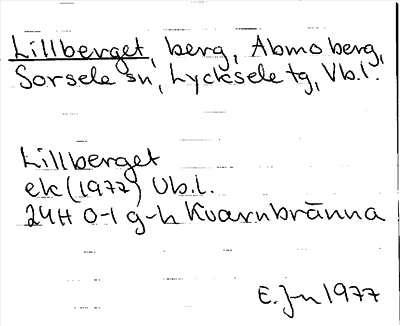 Lillberget, berg, Abmoberg,
Sorsele sn, Lycksele tg, Vb.l.
Lillberget
ek (1977) Vb.l.
24H 0-1 g-h Kvarnbränna
E. Jn 1977